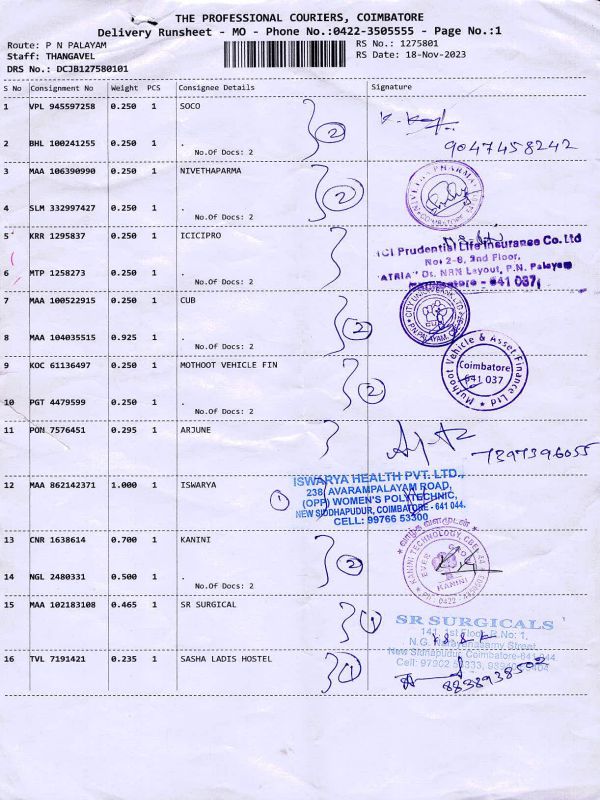 THE PROFESSIONAL COURIERS, COIMBATORE
Delivery Runsheet - MO - Phone No.:0422-3505555 - Page No.:1
Route: P N PALAYAM RS No.: 1275801
Staff: THANGAVEL RS Date: 18-Nov-2023
DRS No.: DCJB127580101
S No Consignment No Weight PCS Consignee Details Signature
1 VPL 945597258 0.250 1 SOCO
2
2 BHL 100241255 0.250 1 .
No.Of Docs: 2
9047458242
3 MAA 106390990 0.250 1 NIVETHAPARMA
2
4 SLM 332997427 0.250 1 .
No.Of Docs: 2
5 KRR 1295837 0.250 1 ICICIPRO
ICI Prudential Life Insurance Co. Ltd
No: 2-8, 2nd Floor,
"ATRIA" Dt. NRN Layout, P.N. Palayam
- 641 037
6 MTP 1258273 0.250 1 .
No.Of Docs: 2
7 MAA 100522915 0.250 1 CUB
2
CITY UNION BANK LTD.
P.N.PALAYAM
8 MAA 104035515 0.925 1 .
No.Of Docs: 2
9 KOC 61136497 0.250 1 MOTHOOT VEHICLE FIN
2
Muthoot Vehicle & Asset Finance Ltd
Coimbatore
641 037
10 PGT 4479599 0.250 1 .
No.Of Docs: 2
11 PON 7576451 0.295 1 ARJUNE
7397396055
12 MAA 862142371 1.000 1 ISWARYA
1
ISWARYA HEALTH PVT. LTD.,
238, AVARAMPALAYAM ROAD,
(OPP) WOMEN'S POLYTECHNIC,
NEW SIDDHAPUDUR, COIMBATORE - 641 044.
CELL: 99766 53300
13 CNR 1638614 0.700 1 KANINI
2
வாழ்க வளமுடன்
KANINI TECHNOLOGY
KANINI
14 NGL 2480331 0.500 1 .
No.Of Docs: 2
15 MAA 102183108 0.465 1 SR SURGICAL
1
SR SURGICALS
141, 1st Floor, R.No: 1,
N.G. Narayanasamy Street,
New Sidhapudur, Coimbatore-641 044
16 TVL 7191421 0.235 1 SASHA LADIS HOSTEL
1
8838938502